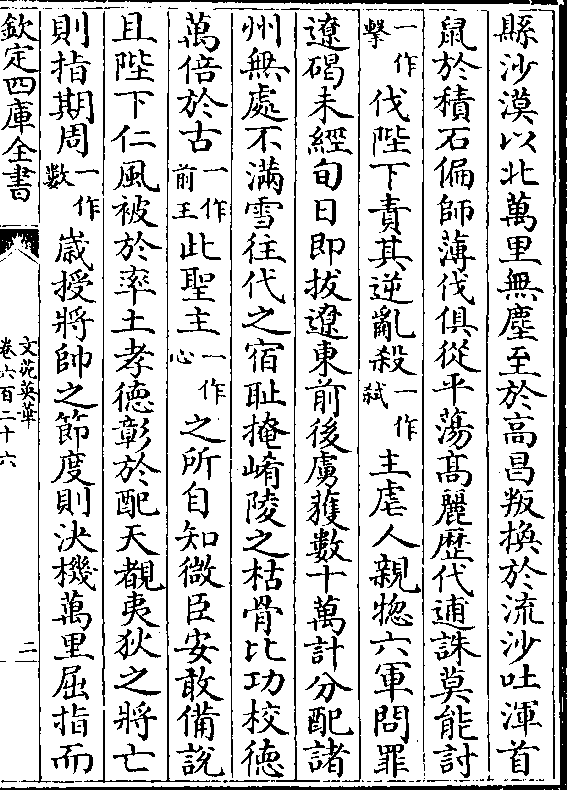 縣沙漠以北萬里無塵至於高昌叛換於流沙吐渾首
鼠於積石偏師薄伐俱從平蕩髙麗歴代逋誅莫能討
一作擊伐陛下責其逆亂殺一作弑主虐人親揔六軍問罪
遼碣未經旬日即拔遼東前後虜獲數十萬計分配諸
州無處不滿雪往代之宿恥掩崤陵之枯骨比功校德
萬倍於古一作前王此聖主一作心之所自知微臣安敢備說
且陛下仁風被於率土孝德彰於配天覩夷狄之將亡
則指期周一作數嵗授將帥之節度則決機萬里屈指而
欽定四庫全書
文苑英華
卷六百二十六
二